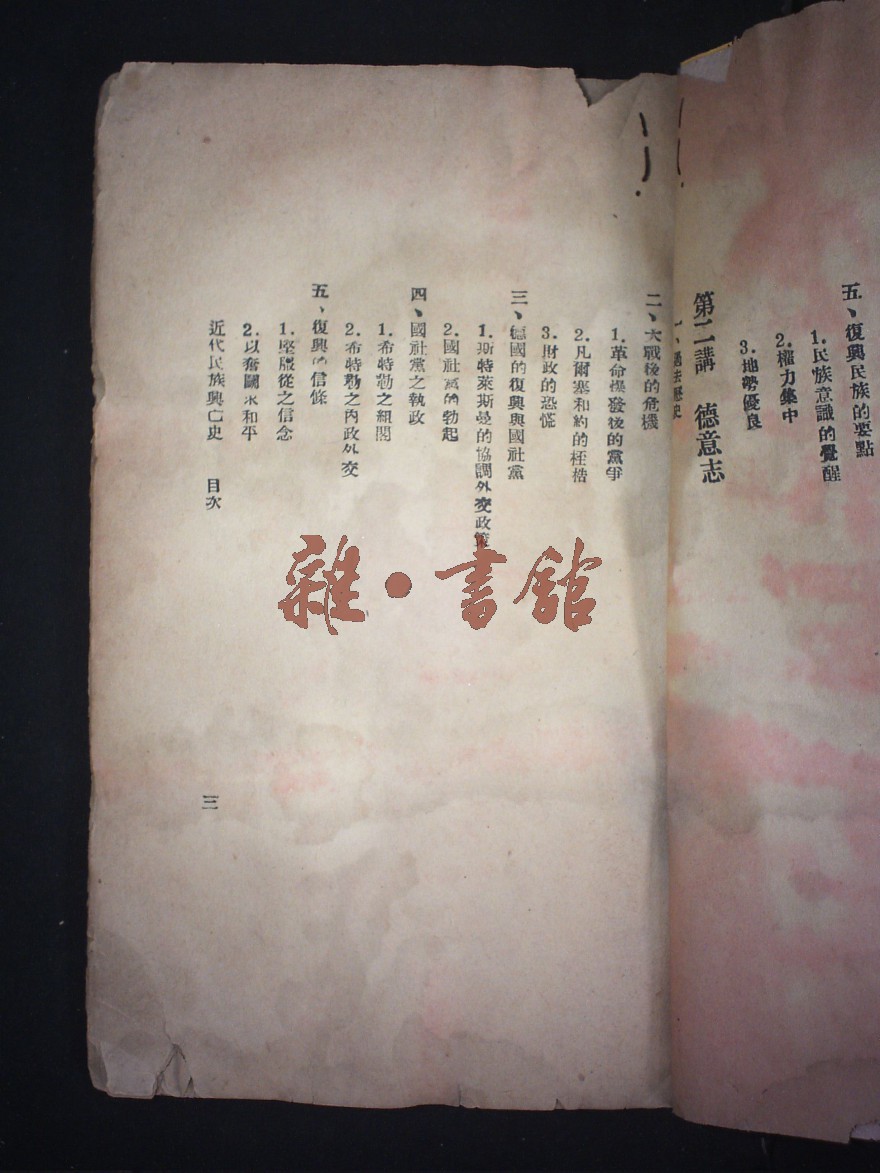 五、復興民族的要點
1.民族意識的覺醒
2.權力集中
3.地勢優良
第二講 德意志
一、過去歷史
二、大戰後的危機
1.革命爆發後的黨爭
2.凡爾塞和約的桎梏
3.財政的恐慌
三、德國的復興與國社黨
1.斯特萊斯曼的協調外交政策
2.國社黨的勃起
四、國社黨之執政
1.希特勒之組閣
2.希特勒之內政外交
五、復興的信條
1.堅服從之信念
2.以奮鬭求和平
近代民族興亡史 目次
三
雜·書館